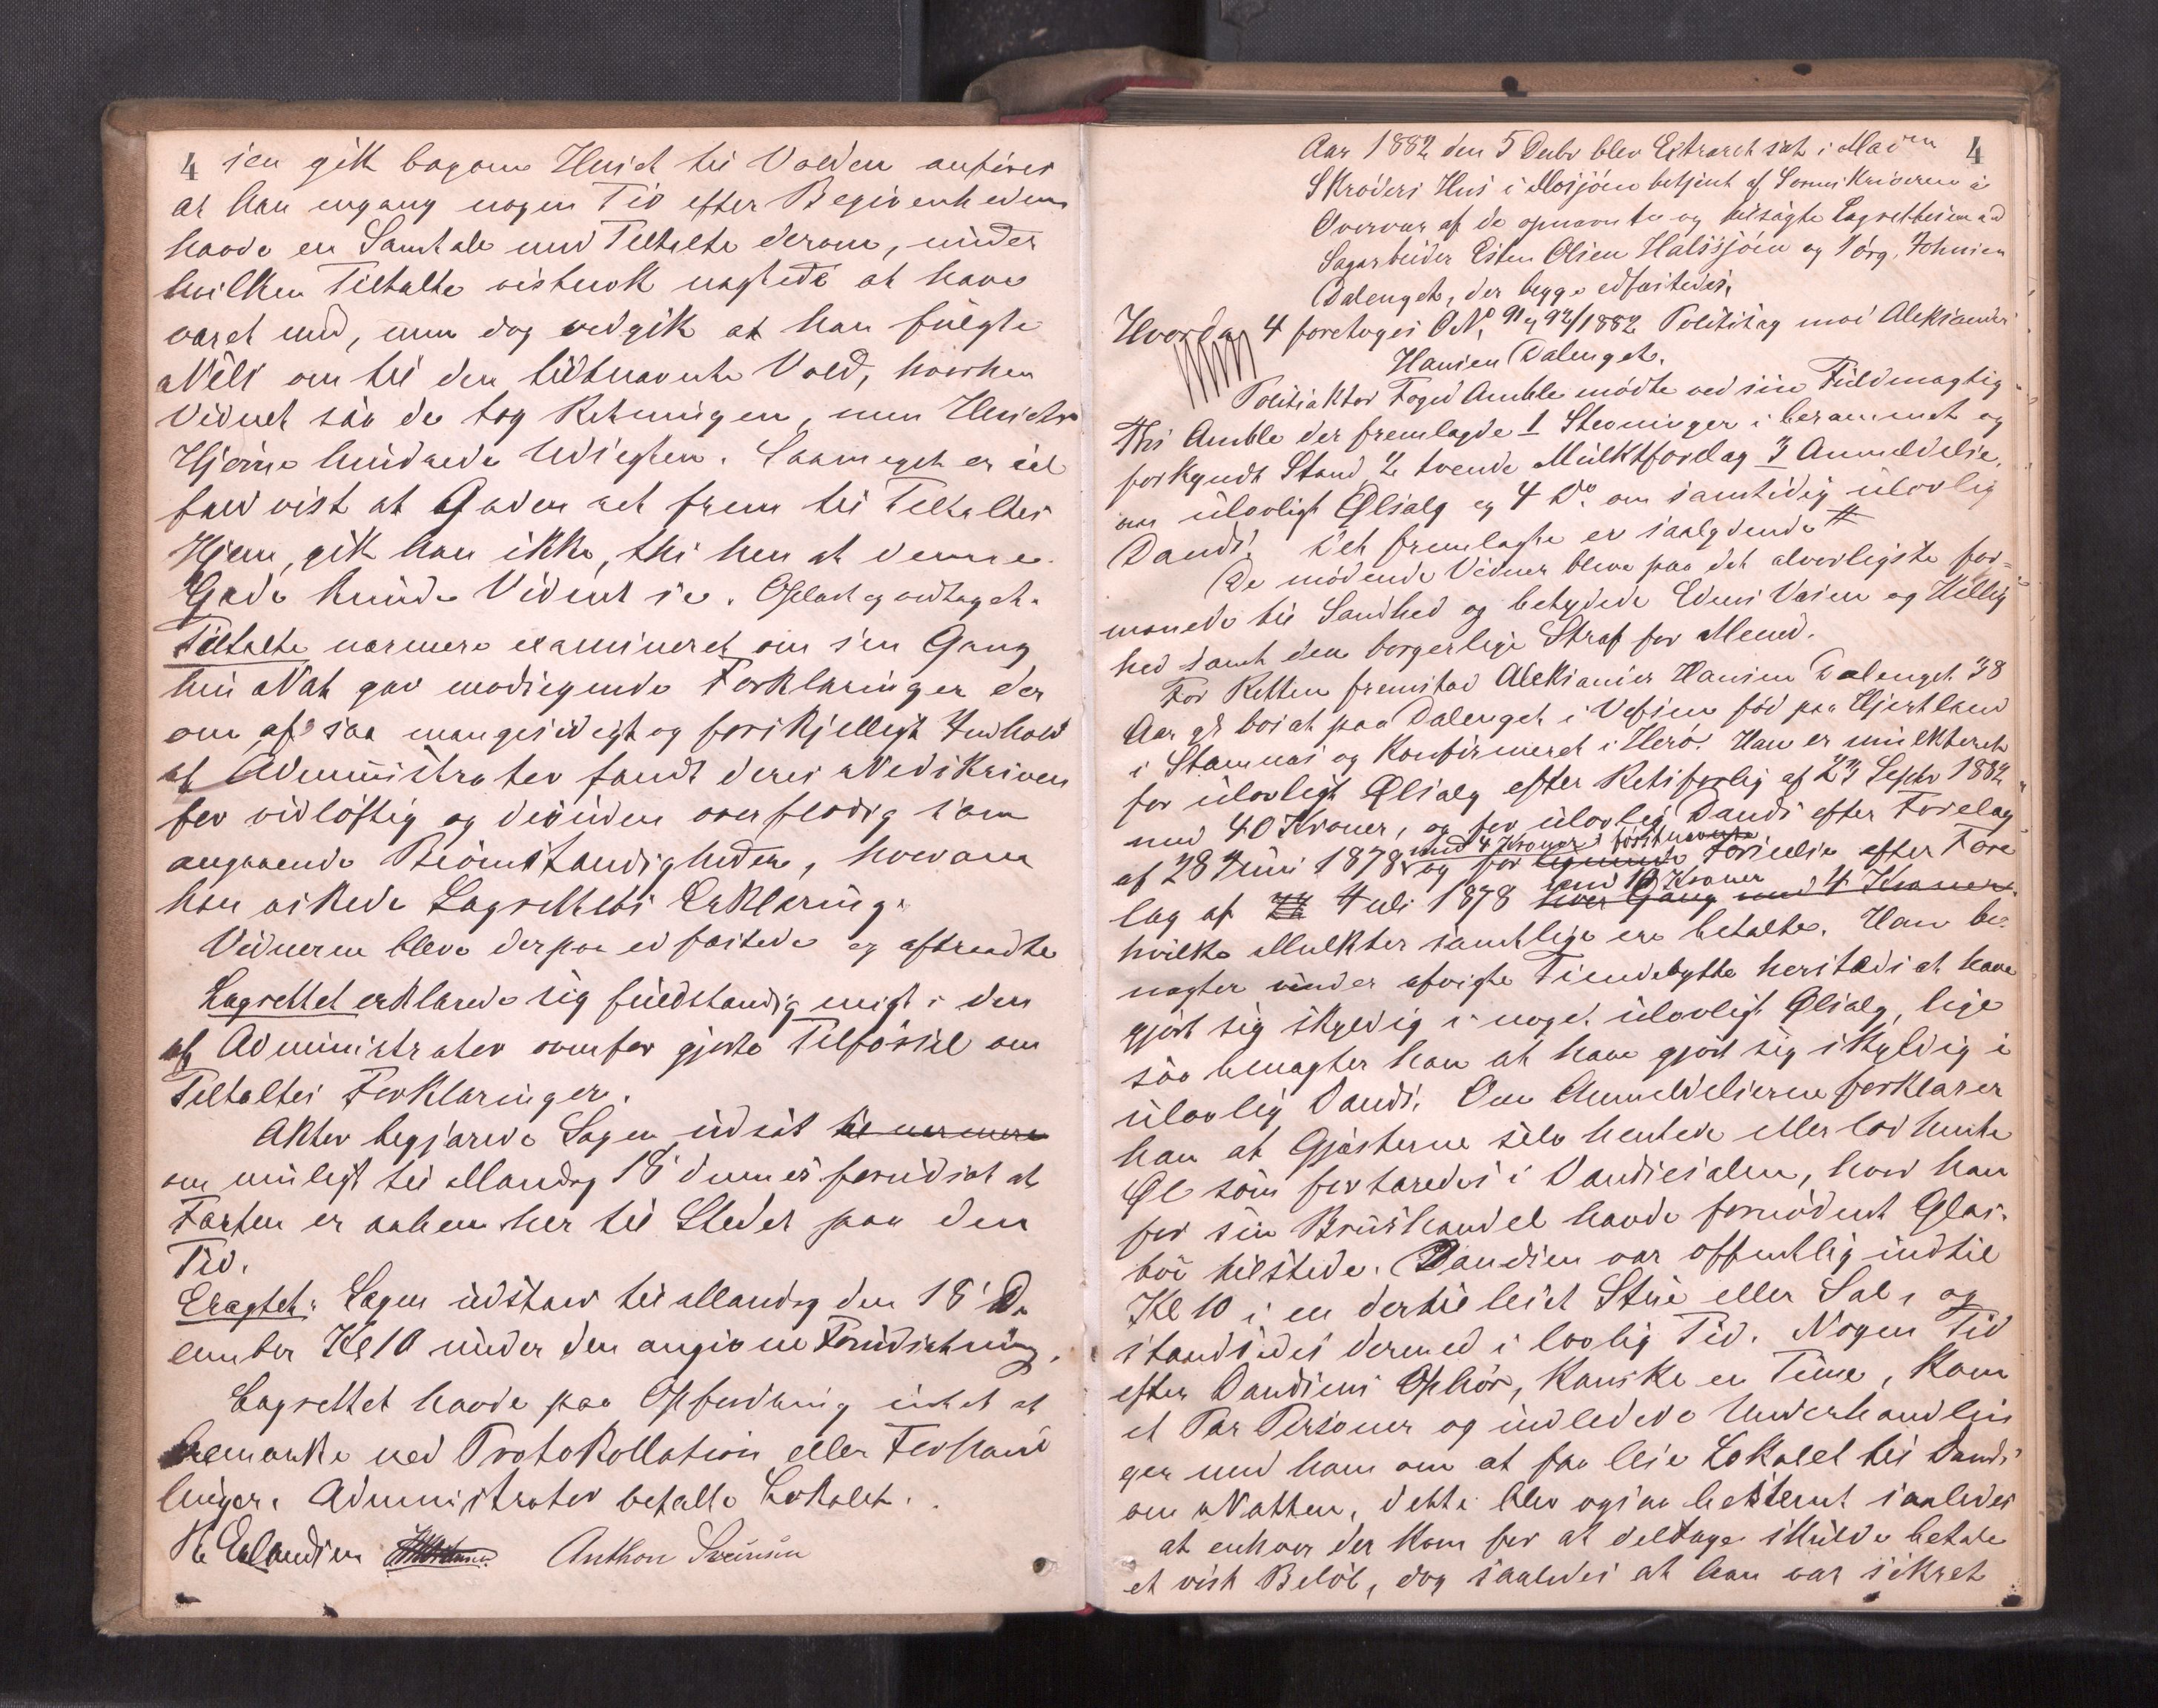 4
sen gik bagom Huset til Volden anföres
at han engang nogen Tid efter Begivenheden
havde en Samtale med Tiltalte derom, under
hvilken Tiltalte vistnok negtede at have
været med, men dog vedgik at han fulgte
Nils om til den tidtnævnte Vold, hvorhen
Vidnet saa de tog Retningen, men Husets
Hjørne hindrede Udsigten. Saameget er ial
fald vist at Gaden ret frem til Tiltaltes
Hjem, gik han ikke, thi hen at denne
Gade kunde Vidnet se. Oplæst og vedtaget.
Tiltalte nærmere examineret om sin Gang
hin Nat gav modsigende Forklaringer der
om af saa mangesidigt og forskjelligt Indhold
at Administrator fandt deres Nedskriven
for vidlöftig og desuden overflödig som
angaaende Biomstændigheder, hvorom
han æskede Lagrettets Erklæring.
Vidnerne bleve derpaa edfæstede og aftraadte
Lagrettet erklærede sig fuldstændig enigt i den
af Administrator ovenfor gjorte Tilförsel om
Tiltaltes Forklaringer.
Aktor begjærede Sagen udsat til nærmere
om muligt til Mandag 18 dennes forudsat at
Farten er aaben her til Stedet paa den
Tid.
Eragtet: Sagen udstaar til Mandag den 18 De
cember Kl 10 under den angivne Forudsætning.
Lagrettet havde paa Opfordring intet at
bemærke ved Protokollation eller Forhand
linger. Administrator betalte Lokalet.
Erlandsen Anthon Svensen
4
Aar 1882 den 5 Decbr blev Extraret sat i Mad<sup>m</sup>
Skröders Hus i Mosjöen betjent af Sorenskriveren i
Overvær af de opnævnte og tilsagte Lagrettesmænd
Sagarbeider Esten Olsen Halssjöen og Jörg. Johnsen
Dalenget, der begge edfæstedes.
Hvorda 4 foretoges O.N<sup>o</sup> 91 og 92/1882 Politisag mod Aleksander
Hansen Dalenget.
Politiaktor Foged Amble mödte ved sin Fuldmægtig
Ths Amble der fremlagde 1 Stevninger i berammet og
forkyndt Stand, 2 tvende Mulktforelag 3 Anmeldelse
om ulovligt Ølsalg og 4 D<sup>o</sup>. om samtidig ulovlig
Dands. Det fremlagte er saalydende #
De mödende Vidner bleve paa det alvorligste for=
manede til Sandhed og betydede Edens Væsen og Hellig
hed samt den borgerlige Straf for Meened.
For Retten fremstod Aleksander Hansen Dalenget 38
Aar gl bosat paa Dalenget i Vefsen föd paa Hjertland
i Stamnæs og konfirmeret i Herö. Han er mulkteret
for ulovligt Ølsalg efter Retsforlig af 23 Septbr 1882
med 40 Kroner, og for ulovlig Dands efter Forelæg
af 28 Juni 1878 med 4 Kroner og for lignende förstnævnte Forseelse efter Fore
læg af 22 Juli 1878 med 10 Kroner hver Gang med 4 Kroner
hvilke Mulkter samtlige ere betalte. Han be-
nægter under afvigte Tiendebytte herstæds at have
gjort sig skyldig i noget ulovligt Ølsalg, lige
saa benægter han at have gjort sig skyldig i
ulovlig Dands. Om Anmeldelserne forklarer
han at Gjæsterne selv hentede eller lod hente
Øl som fortæredes i Dandsesalen, hvor han
for sin Brushandel havde fornödent Glas-
töi tilstede. Dandsen var offentlig indtil
Kl 10 i en dertil leiet Stue eller Sal, og
standsedes dermed i lovlig Tid. Nogen Tid
efter Dandsens Ophör, kanske en Time, kom
et Par Personer og indledede Underhandlin
ger med ham om at faa leie Lokalet til Dands
om Natten, dette blev ogsaa bestemt saaledes
at enhver der kom for at deltage skulde betale
et vist Belöb, dog saaledes at han var sikret